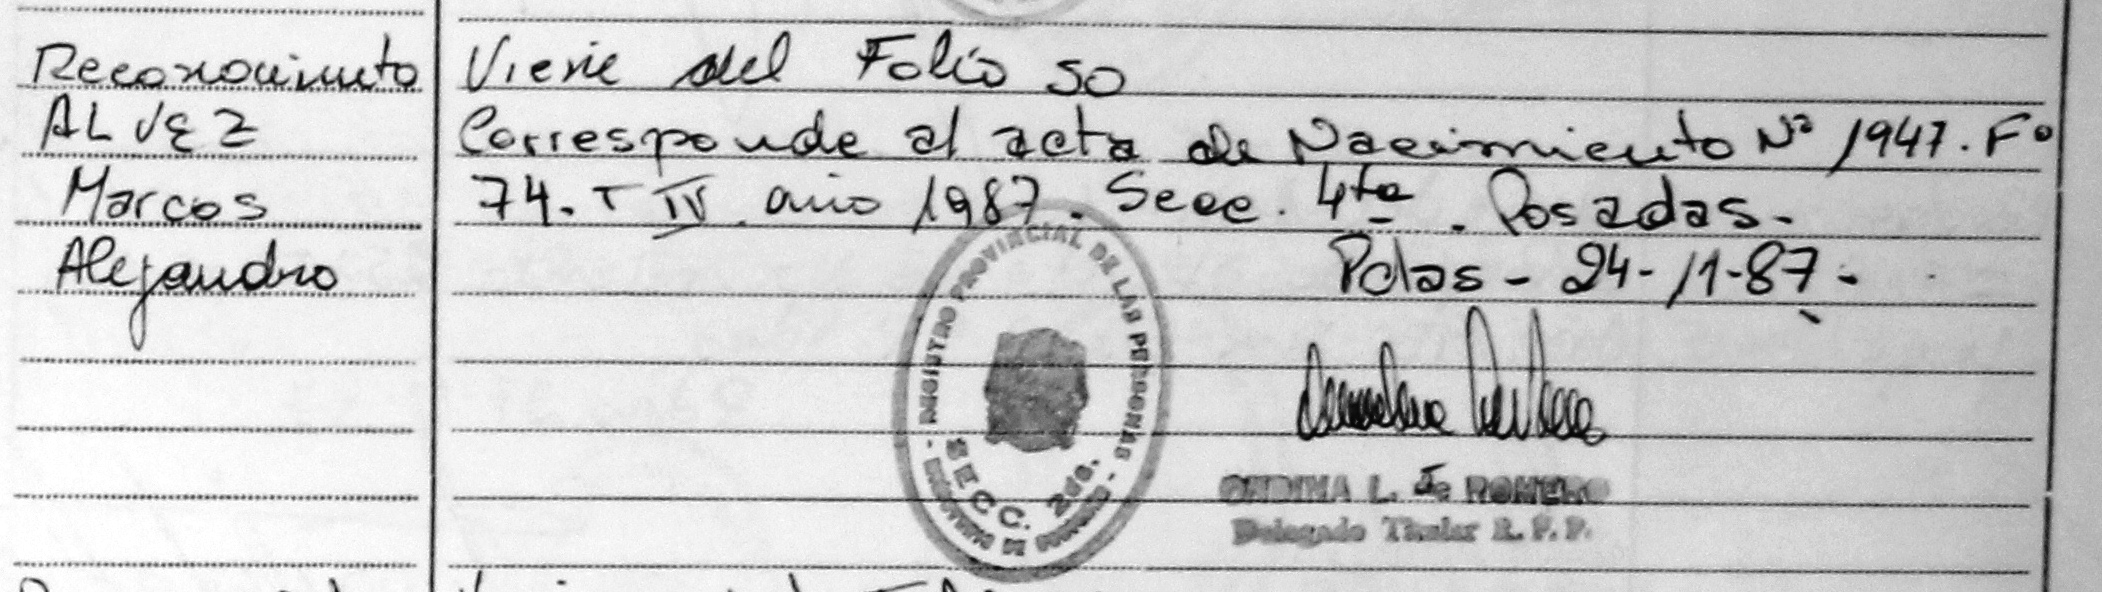 Reconocimiento
ALVEZ
Marcos
Alejandro
Viene del Folio 50
Corresponde al acta de Nacimiento Nº 1947. Fº
74. T IV. año 1987. Secc. 4ta. Posadas.
Pdas - 24-11-87.
REGISTRO PROVINCIAL DE LAS PERSONAS
SECC. 2da.
MINISTERIO DE GOBIERNO
ONDINA L. de ROMERO
Delegado Titular R. P. P.